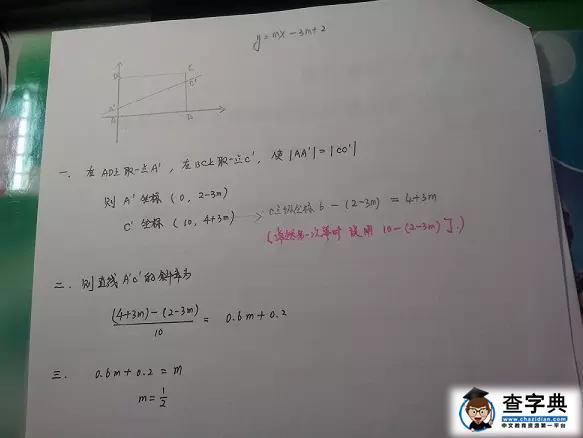 y=mx-3m+2
D
C
C'
A'
A
B
一. 在AD上取一点A', 在BC上取一点C', 使|AA'|=|CC'|
则 A' 坐标 (0, 2-3m)
C' 坐标 (10, 4+3m) → C'纵坐标 6-(2-3m) = 4+3m
(当然第一次算时 误用 10-(2-3m)了.)
二. 则直线A'C'的斜率为
(4+3m)-(2-3m) / 10 = 0.6m+0.2
三. 0.6m+0.2 = m
m=1/2
查字典
www.chazidian.com
中文教育资源第一平台